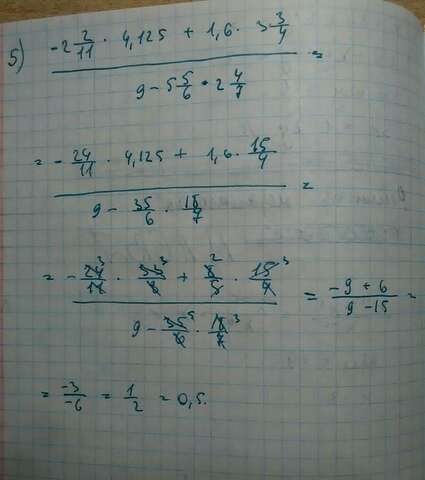 5) (-2 2/11 · 4,125 + 1,6 · 3 3/4) / (9 - 5 5/6 · 2 4/7) =
= (-24/11 · 4,125 + 1,6 · 15/4) / (9 - 35/6 · 18/7) =
= (-24/11 · 33/8 + 8/5 · 15/4) / (9 - 35/6 · 18/7) = (-9 + 6) / (9 - 15) =
= -3/-6 = 1/2 = 0,5.